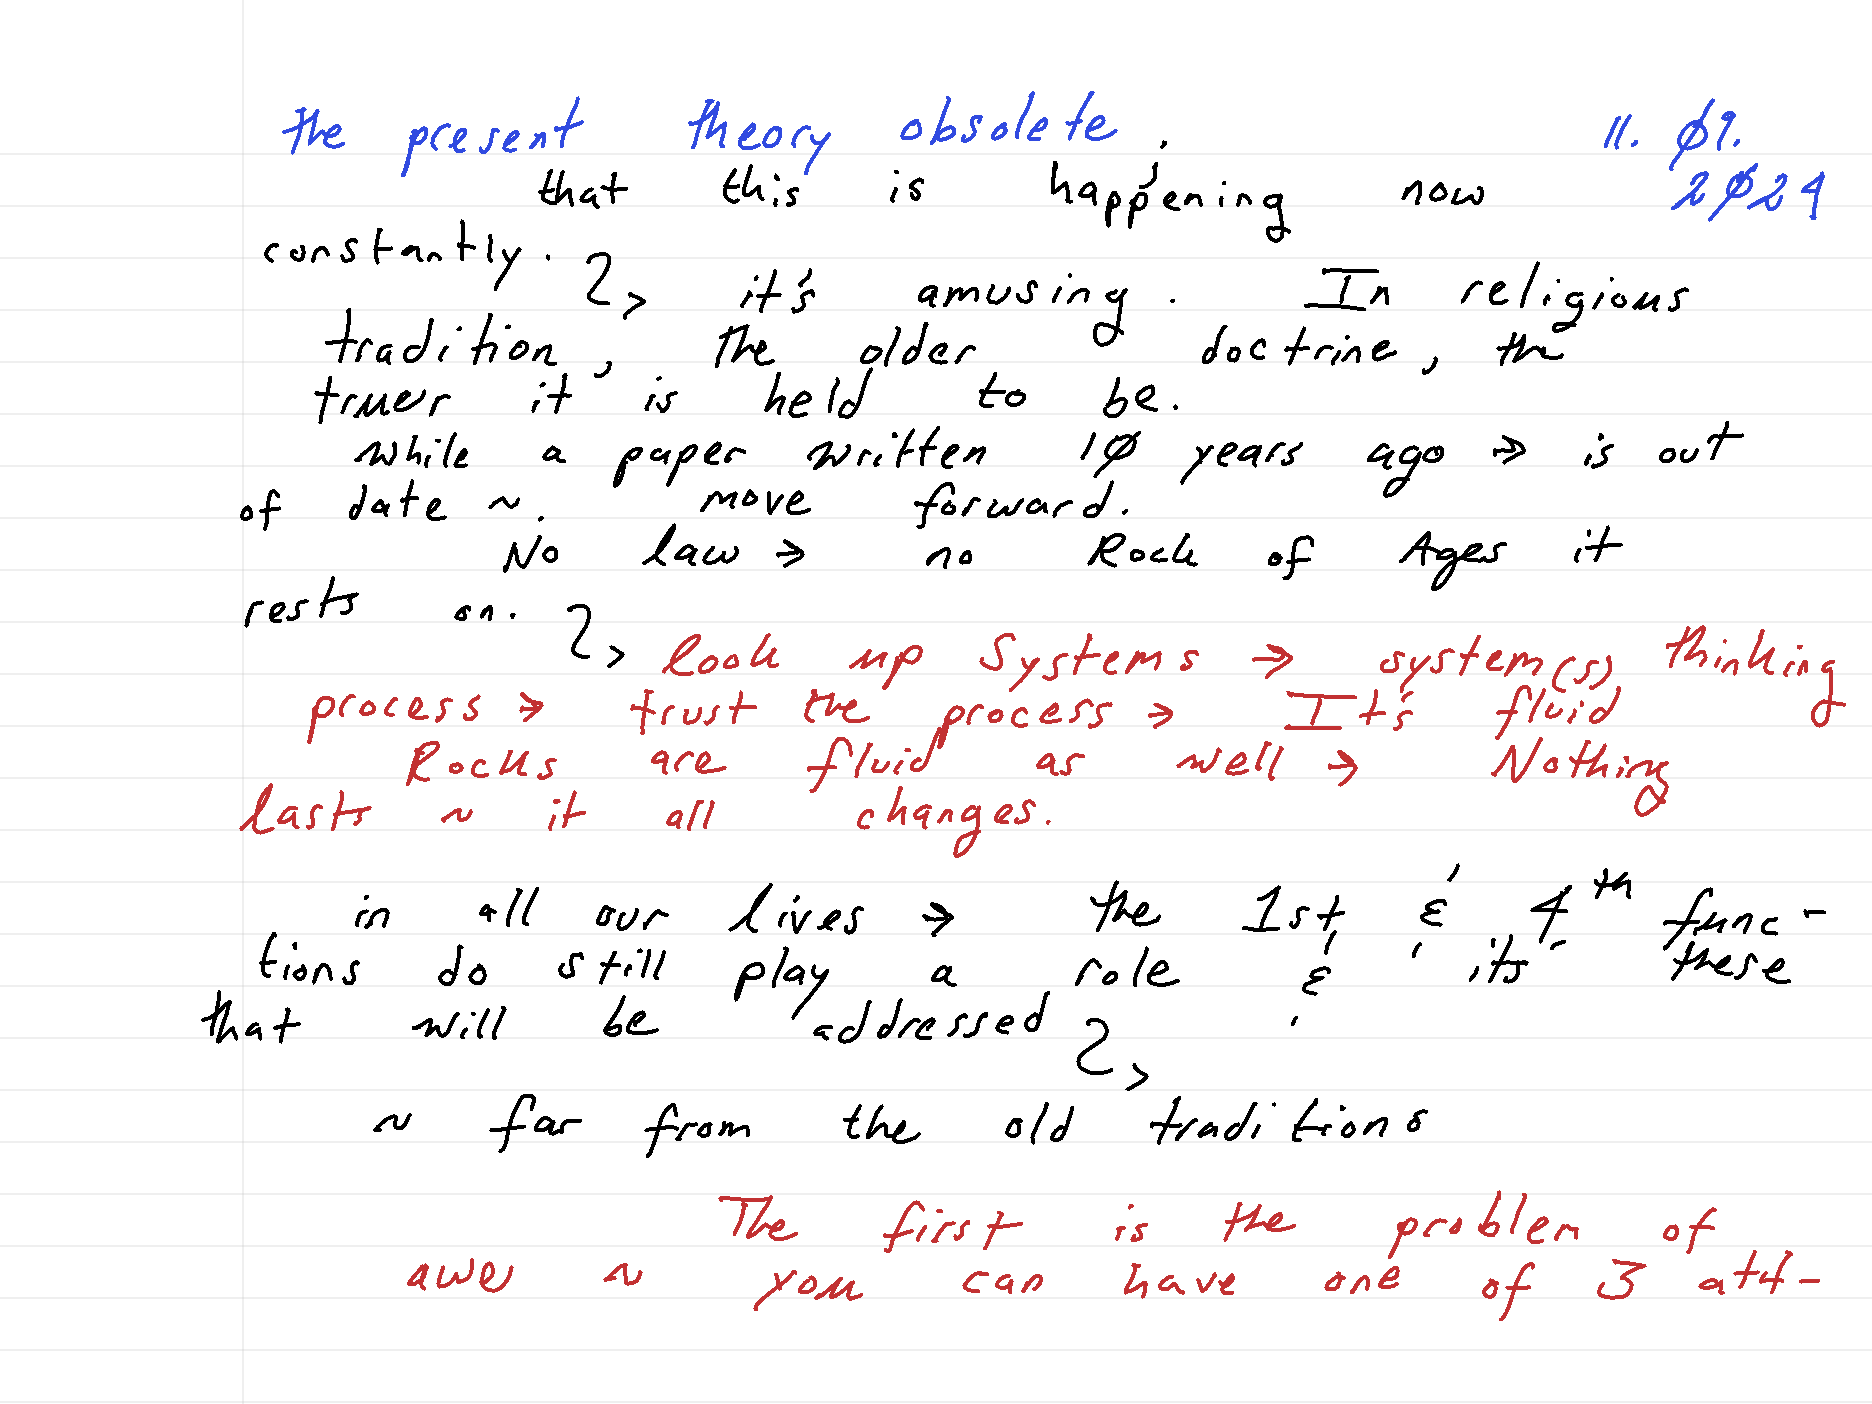 the present theory obsolete. 11. Ø9.
that this is happening now 2Ø24
constantly. it's amusing. In religious
tradition, the older doctrine, the
truer it is held to be.
while a paper written 1Ø years ago → is out
of date ~. move forward.
No law → no Rock of Ages it
rests on.
look up Systems → system(s) thinking
process → trust the process → It's fluid
Rocks are fluid as well → Nothing
lasts ~ it all changes.
in all our lives → the 1st & 4th func-
tions do still play a role & its these
that will be addressed
~ far from the old traditions
The first is the problem of
awe ~ you can have one of 3